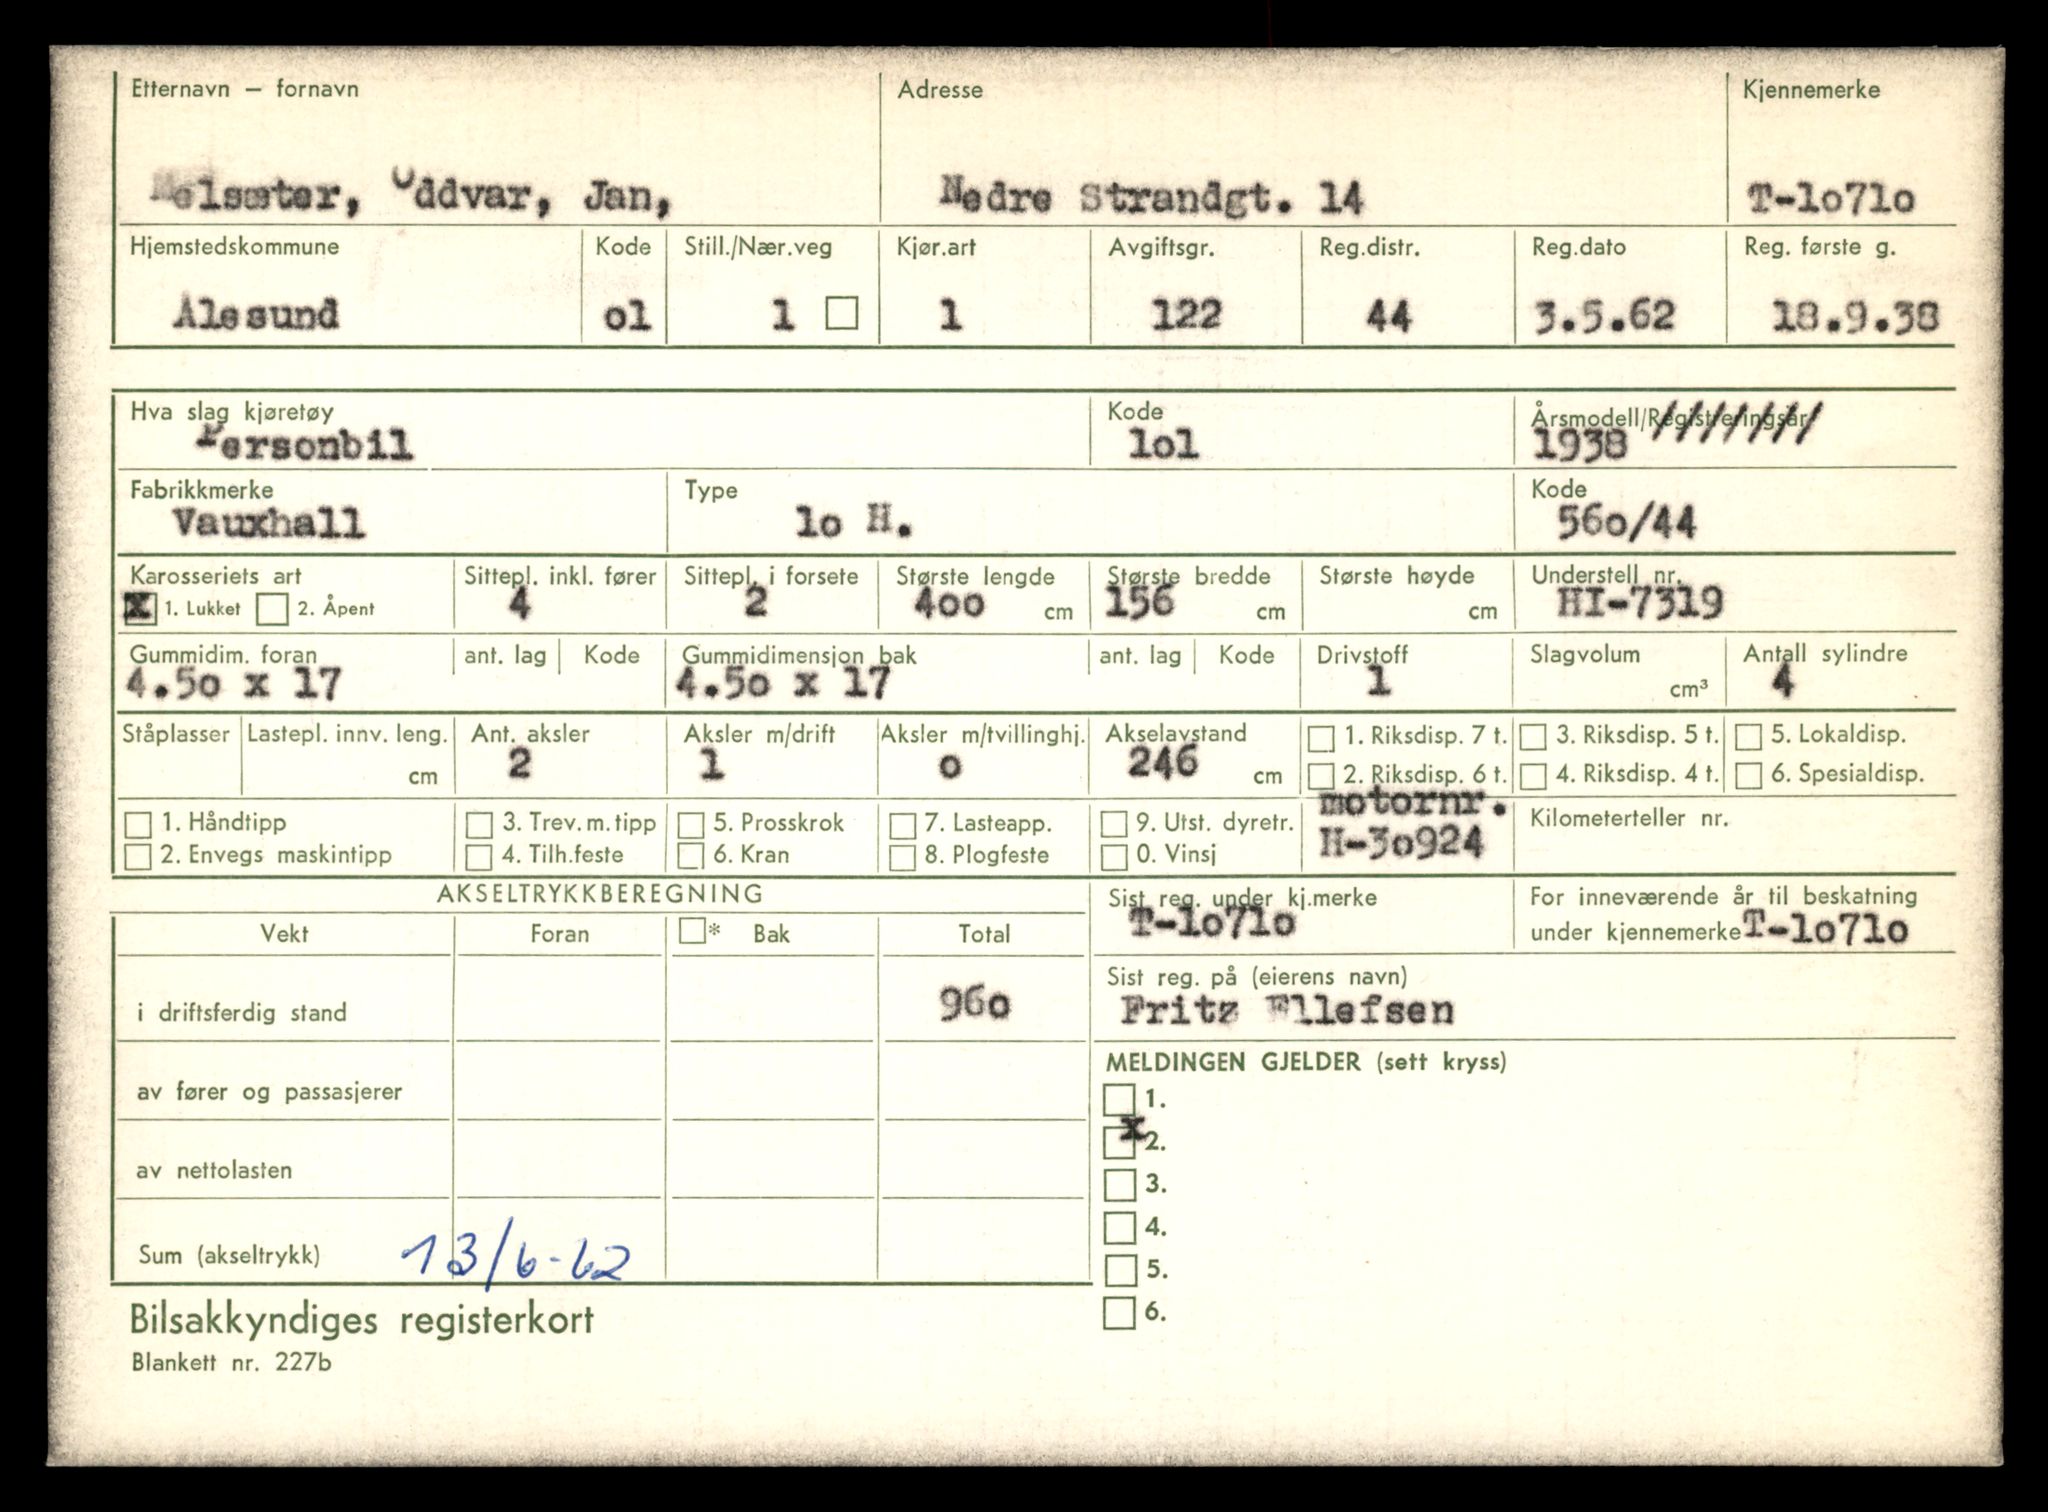 Etternavn – fornavn Adresse Kjennemerke
Melsæter, Oddvar, Jan, Nedre Strandgt. 14 T-lo7lo
Hjemstedskommune Kode Still./Nær.veg Kjør.art Avgiftsgr. Reg.distr. Reg.dato Reg. første g.
Ålesund ol 1 1 122 44 3.5.62 18.9.38
Hva slag kjøretøy Kode Årsmodell/Registreringsår ////////
Personbil lol 1938
Fabrikkmerke Type Kode
Vauxhall lo H. 56o/44
Karosseriets art Sittepl. inkl. fører Sittepl. i forsete Største lengde Største bredde Største høyde Understell nr.
x 1. Lukket 2. Åpent 4 2 4oo cm 156 cm cm HI-7319
Gummidim. foran ant. lag Kode Gummidimensjon bak ant. lag Kode Drivstoff Slagvolum Antall sylindre
4.5o x 17 4.5o x 17 1 cm³ 4
Ståplasser Lastepl. innv. leng. Ant. aksler Aksler m/drift Aksler m/tvillinghj. Akselavstand 1. Riksdisp. 7 t. 3. Riksdisp. 5 t. 5. Lokaldisp.
cm 2 1 o 246 cm 2. Riksdisp. 6 t. 4. Riksdisp. 4 t. 6. Spesialdisp.
1. Håndtipp 3. Trev. m. tipp 5. Prosskrok 7. Lasteapp. 9. Utst. dyretr. motornr. Kilometerteller nr.
2. Envegs maskintipp 4. Tilh.feste 6. Kran 8. Plogfeste 0. Vinsj H-3o924
AKSELTRYKKBEREGNING Sist reg. under kj.merke For inneværende år til beskatning
Vekt Foran * Bak Total T-lo7lo under kjennemerke T-lo7lo
Sist reg. på (eierens navn)
i driftsferdig stand 96o Fritz Ellefsen
MELDINGEN GJELDER (sett kryss)
av fører og passasjerer 1.
x 2.
av nettolasten 3.
4.
Sum (akseltrykk) 13/6-62 5.
Bilsakkyndiges registerkort 6.
Blankett nr. 227b